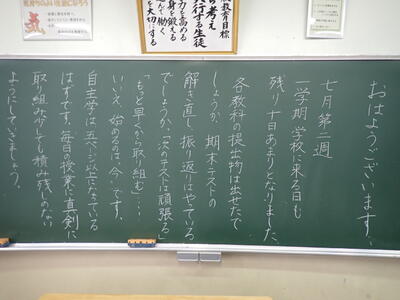 おはようございます。
七月第二週
一学期、学校に来る日も
残り十日あまりとなりました。
各教科の提出物は出せたで
しょうか。期末テストの
解き直し、振り返りはやっている
でしょうか。「次のテストは頑張る」
「もっと早くから取り組む」・・・
いいえ、始めるのは、今です。
自主学は五ページ以上になっている
はずです。毎日の授業に真剣に
取り組み、少しでも積み残しのない
ようにしていきましょう。
教育目標
考え
実行する生徒
力を高める
心身を鍛える
進んで働く
を大切にする